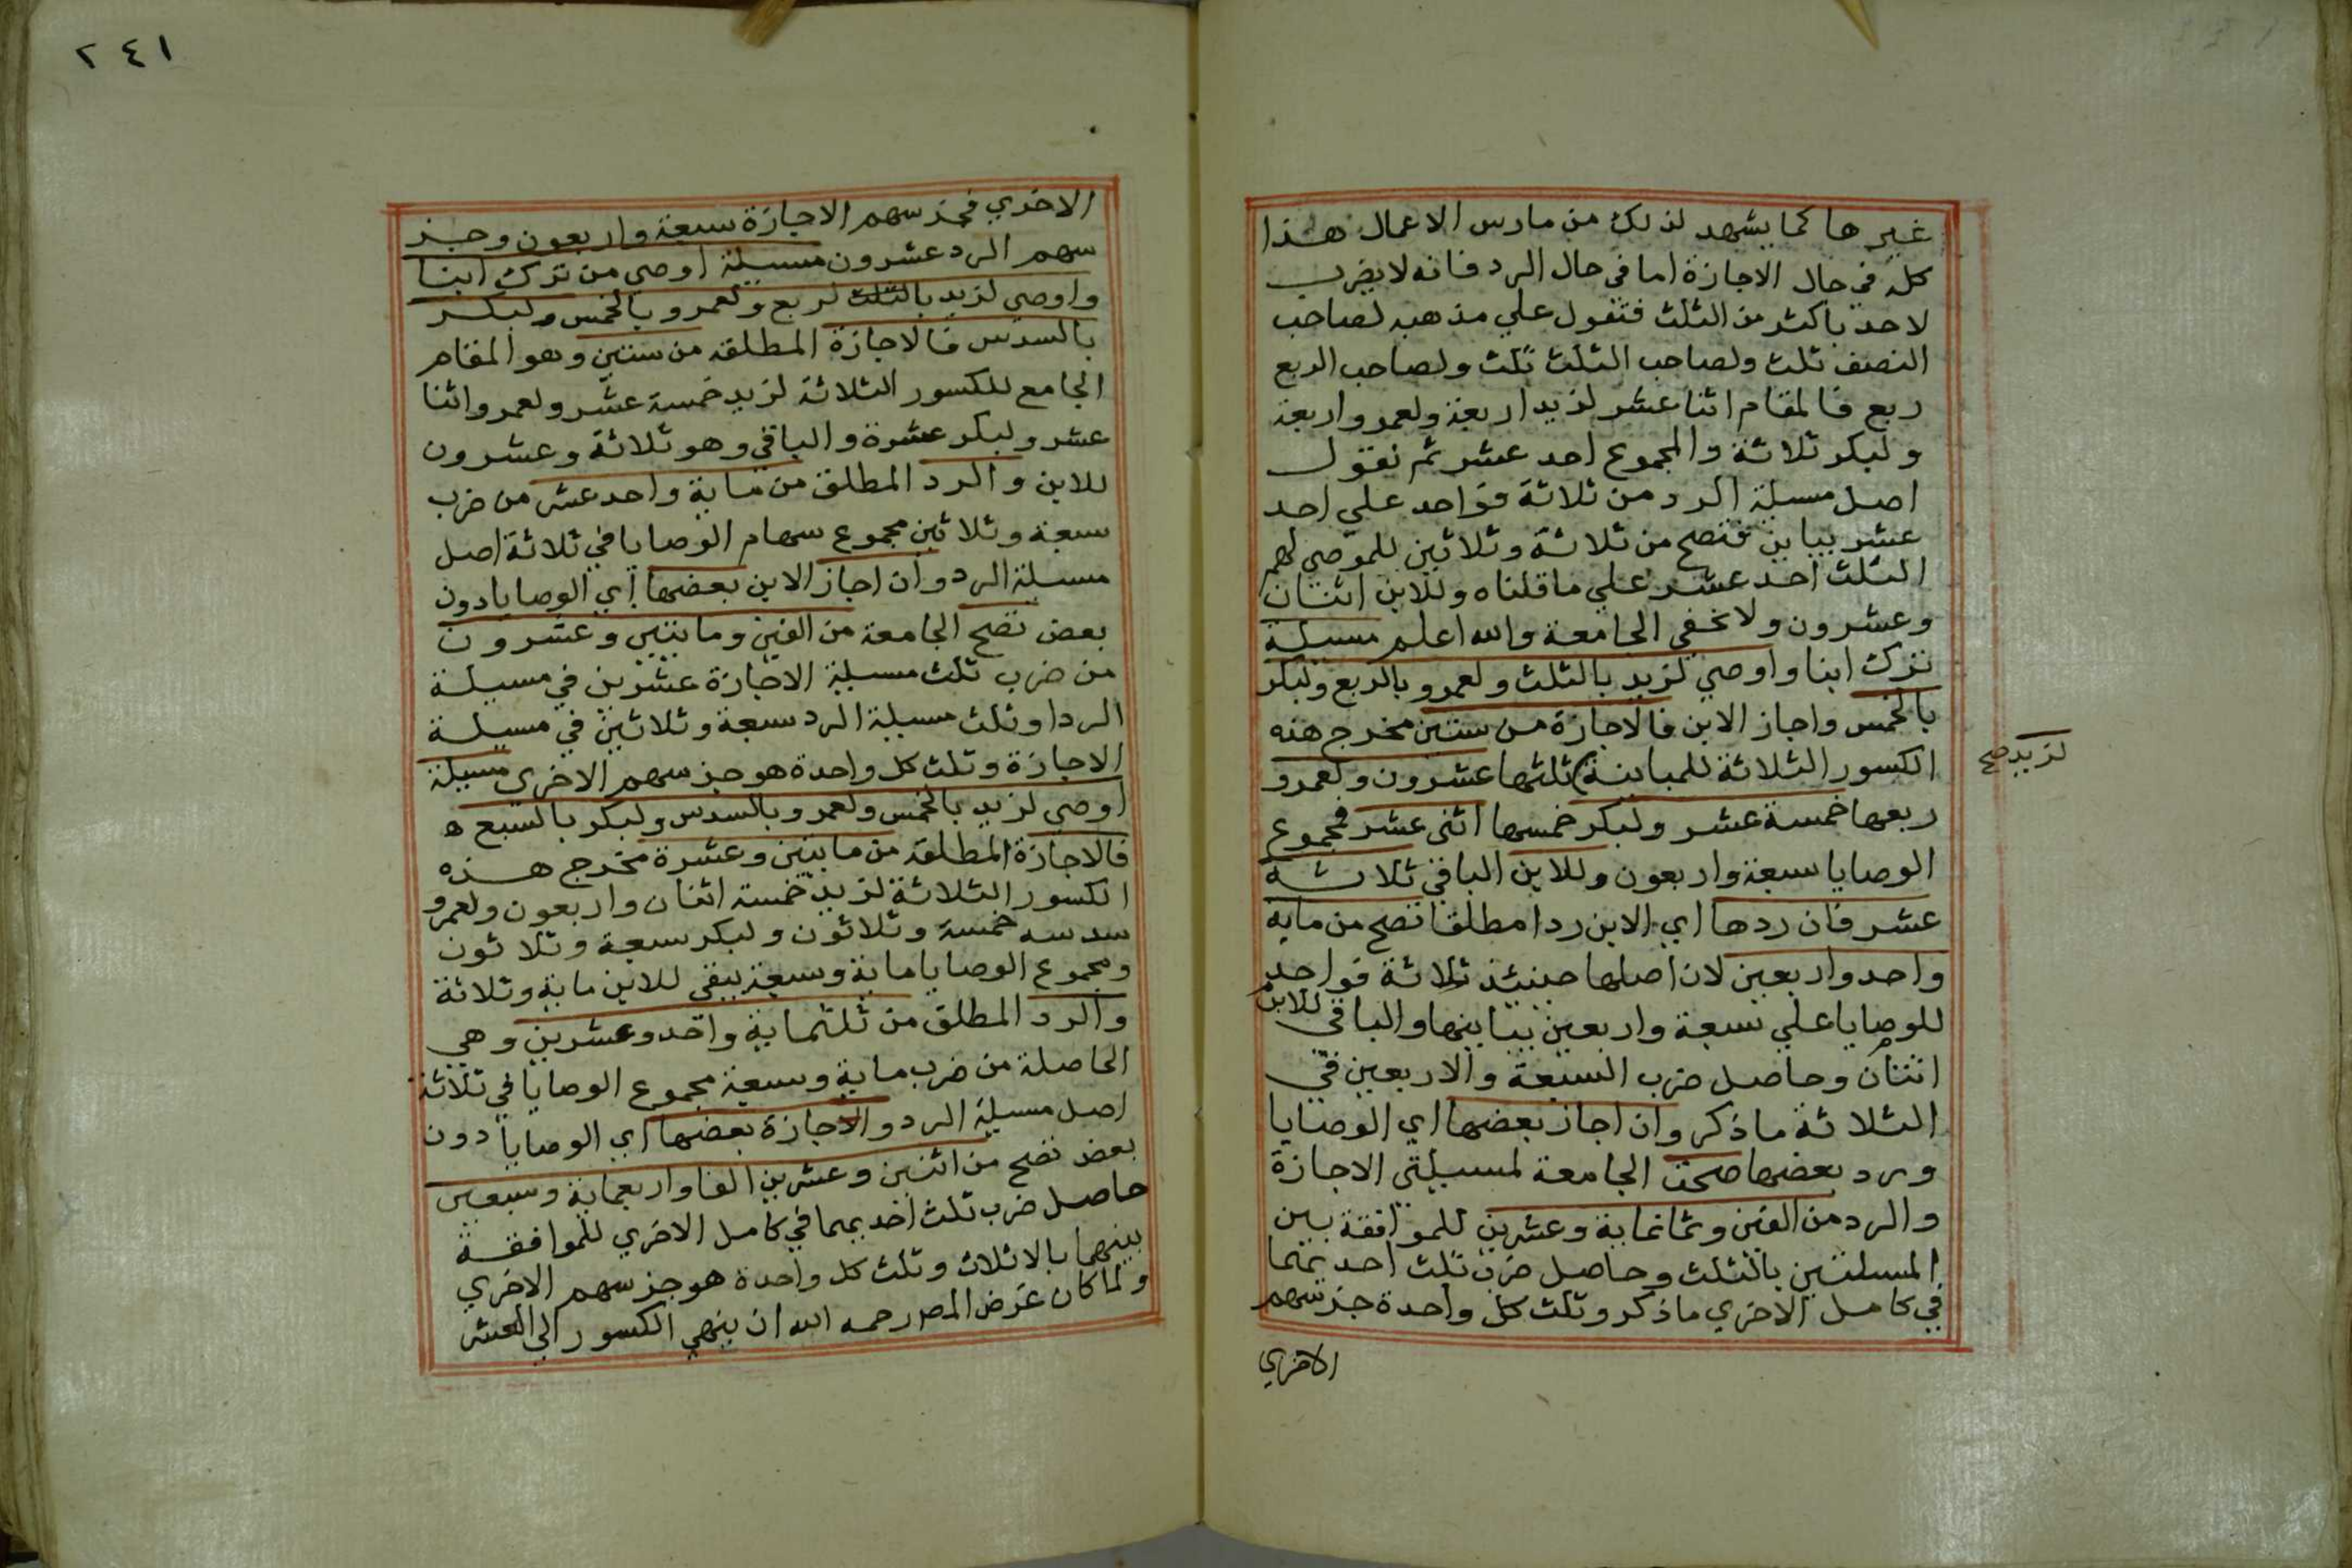 غيرها كما يشهد لذلك من مارس الاعمال هذا
كله في حال الاجازة اما في حال الرد فانه لا يضرب
لاحد باكثر من الثلث فتقول علي مذهبه لصاحب
النصف ثلث ولصاحب الثلث ثلث ولصاحب الربع
ربع فالمقام اثنا عشر لزيد اربعة ولعمرو اربعة
ولبكر ثلاثة والمجموع احد عشر ثم نقول
اصل مسيلة الرد من ثلاثة فواحد علي احد
عشر يباين فتصح من ثلاثة وثلاثين للموصي لهم
الثلث احد عشر علي ما قلناه وللابن اثنان
وعشرون ولا تخفي الجامعة والله اعلم مسيلة
ترك ابنا واوصي لزيد بالثلث ولعمرو بالربع ولبكر
بالخمس واجاز الابن فالاجازة من ستين مخرج هذه
الكسور الثلاثة للمباينة ثلثها عشرون ولعمرو
لزيد صح
ربعها خمسة عشر ولبكر خمسها اثنى عشر فمجموع
الوصايا سبعة واربعون وللابن الباقي ثلاثة
عشر فان ردها اي الابن ردا مطلقا تصح من ماية
واحد واربعين لان اصلها حينئذ ثلاثة فواحد
للوصايا علي سبعة واربعين يباينها والباقي للابن
اثنان وحاصل ضرب السبعة والاربعين في
الثلاثة ما ذكر وان اجاز بعضها اي الوصايا
ورد بعضها صحت الجامعة لمسيلتى الاجازة
والرد من الفين وثمانماية وعشرين للموافقة بين
المسيلتين بالثلث وحاصل ضرب ثلث احديهما
في كامل الاخري ما ذكر وثلث كل واحدة جز سهم
الاخري
٢٤١
الاخري فجز سهم الاجازة سبعة واربعون وجز
سهم الرد عشرون مسيلة اوصي من ترك ابنا
واوصي لزيد بالثلث لربع ولعمرو بالخمس ولبكر
بالسدس فالاجازة المطلقه من ستين وهو المقام
الجامع للكسور الثلاثة لزيد خمسة عشر ولعمرو اثنا
عشر ولبكر عشرة والباقي وهو ثلاثة وعشرون
للابن والرد المطلق من ماية واحد عشر من ضرب
سبعة وثلاثين مجموع سهام الوصايا في ثلاثة اصل
مسيلة الرد وان اجاز الابن بعضها اي الوصايا دون
بعض تصح الجامعة من الفين ومايتين وعشرون
من ضرب ثلث مسيلة الاجازة عشرين في مسيلة
الرد او ثلث مسيلة الرد سبعة وثلاثين في مسيلة
الاجازة وثلث كل واحدة هو جز سهم الاخرى مسيلة
اوصي لزيد بالخمس ولعمرو بالسدس ولبكر بالسبع ه
فالاجازة المطلقه من مايتين وعشرة مخرج هذه
الكسور الثلاثة لزيد خمسه اثنان واربعون ولعمرو
سدسه خمسة وثلاثون ولبكر سبعة وثلاثون
ومجموع الوصايا ماية وسبعة يبقي للابن ماية وثلاثة
والرد المطلق من ثلثماية واحد وعشرين وهي
الحاصلة من ضرب ماية وسبعة مجموع الوصايا في ثلاثة
اصل مسيلة الرد والاجازة بعضها اي الوصايا دون
بعض تصح من اثنين وعشرين الفا واربعماية وسبعين
حاصل ضرب ثلث احديهما في كامل الاخري للموافقة
بينهما بالاثلاث وثلث كل واحدة هو جز سهم الاخري
ولما كان غرض المص رحمه الله ان ينهي الكسور الي العشر